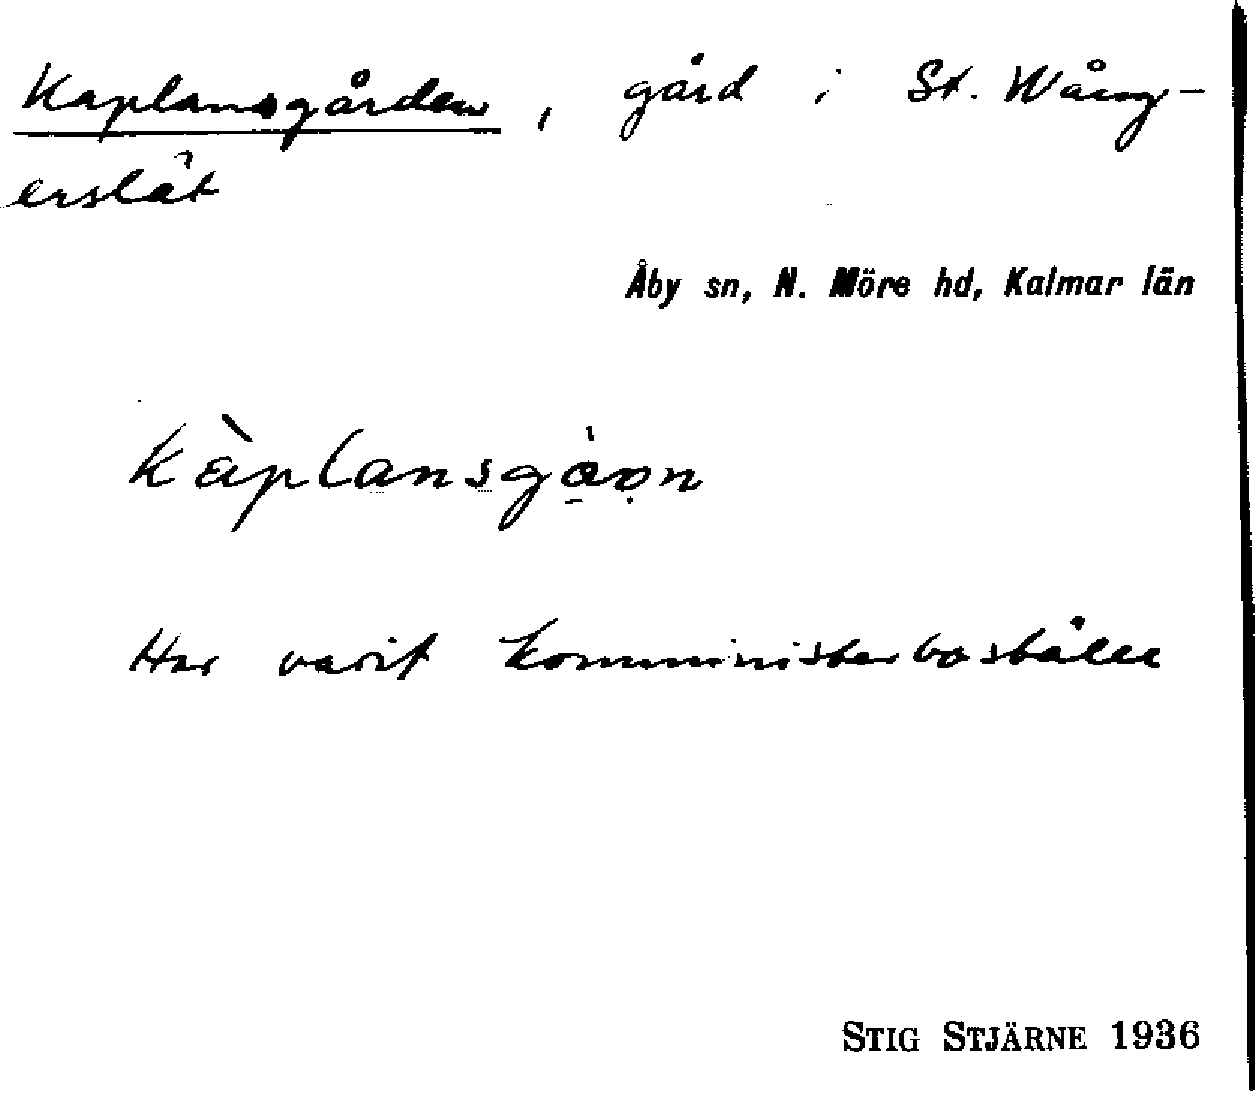 Kaplansgården, gård i St. Wång-
erslät
Åby sn, N. Möre hd, Kalmar län
kàplansgån
Har varit komministerboställe
STIG STJÄRNE 1936